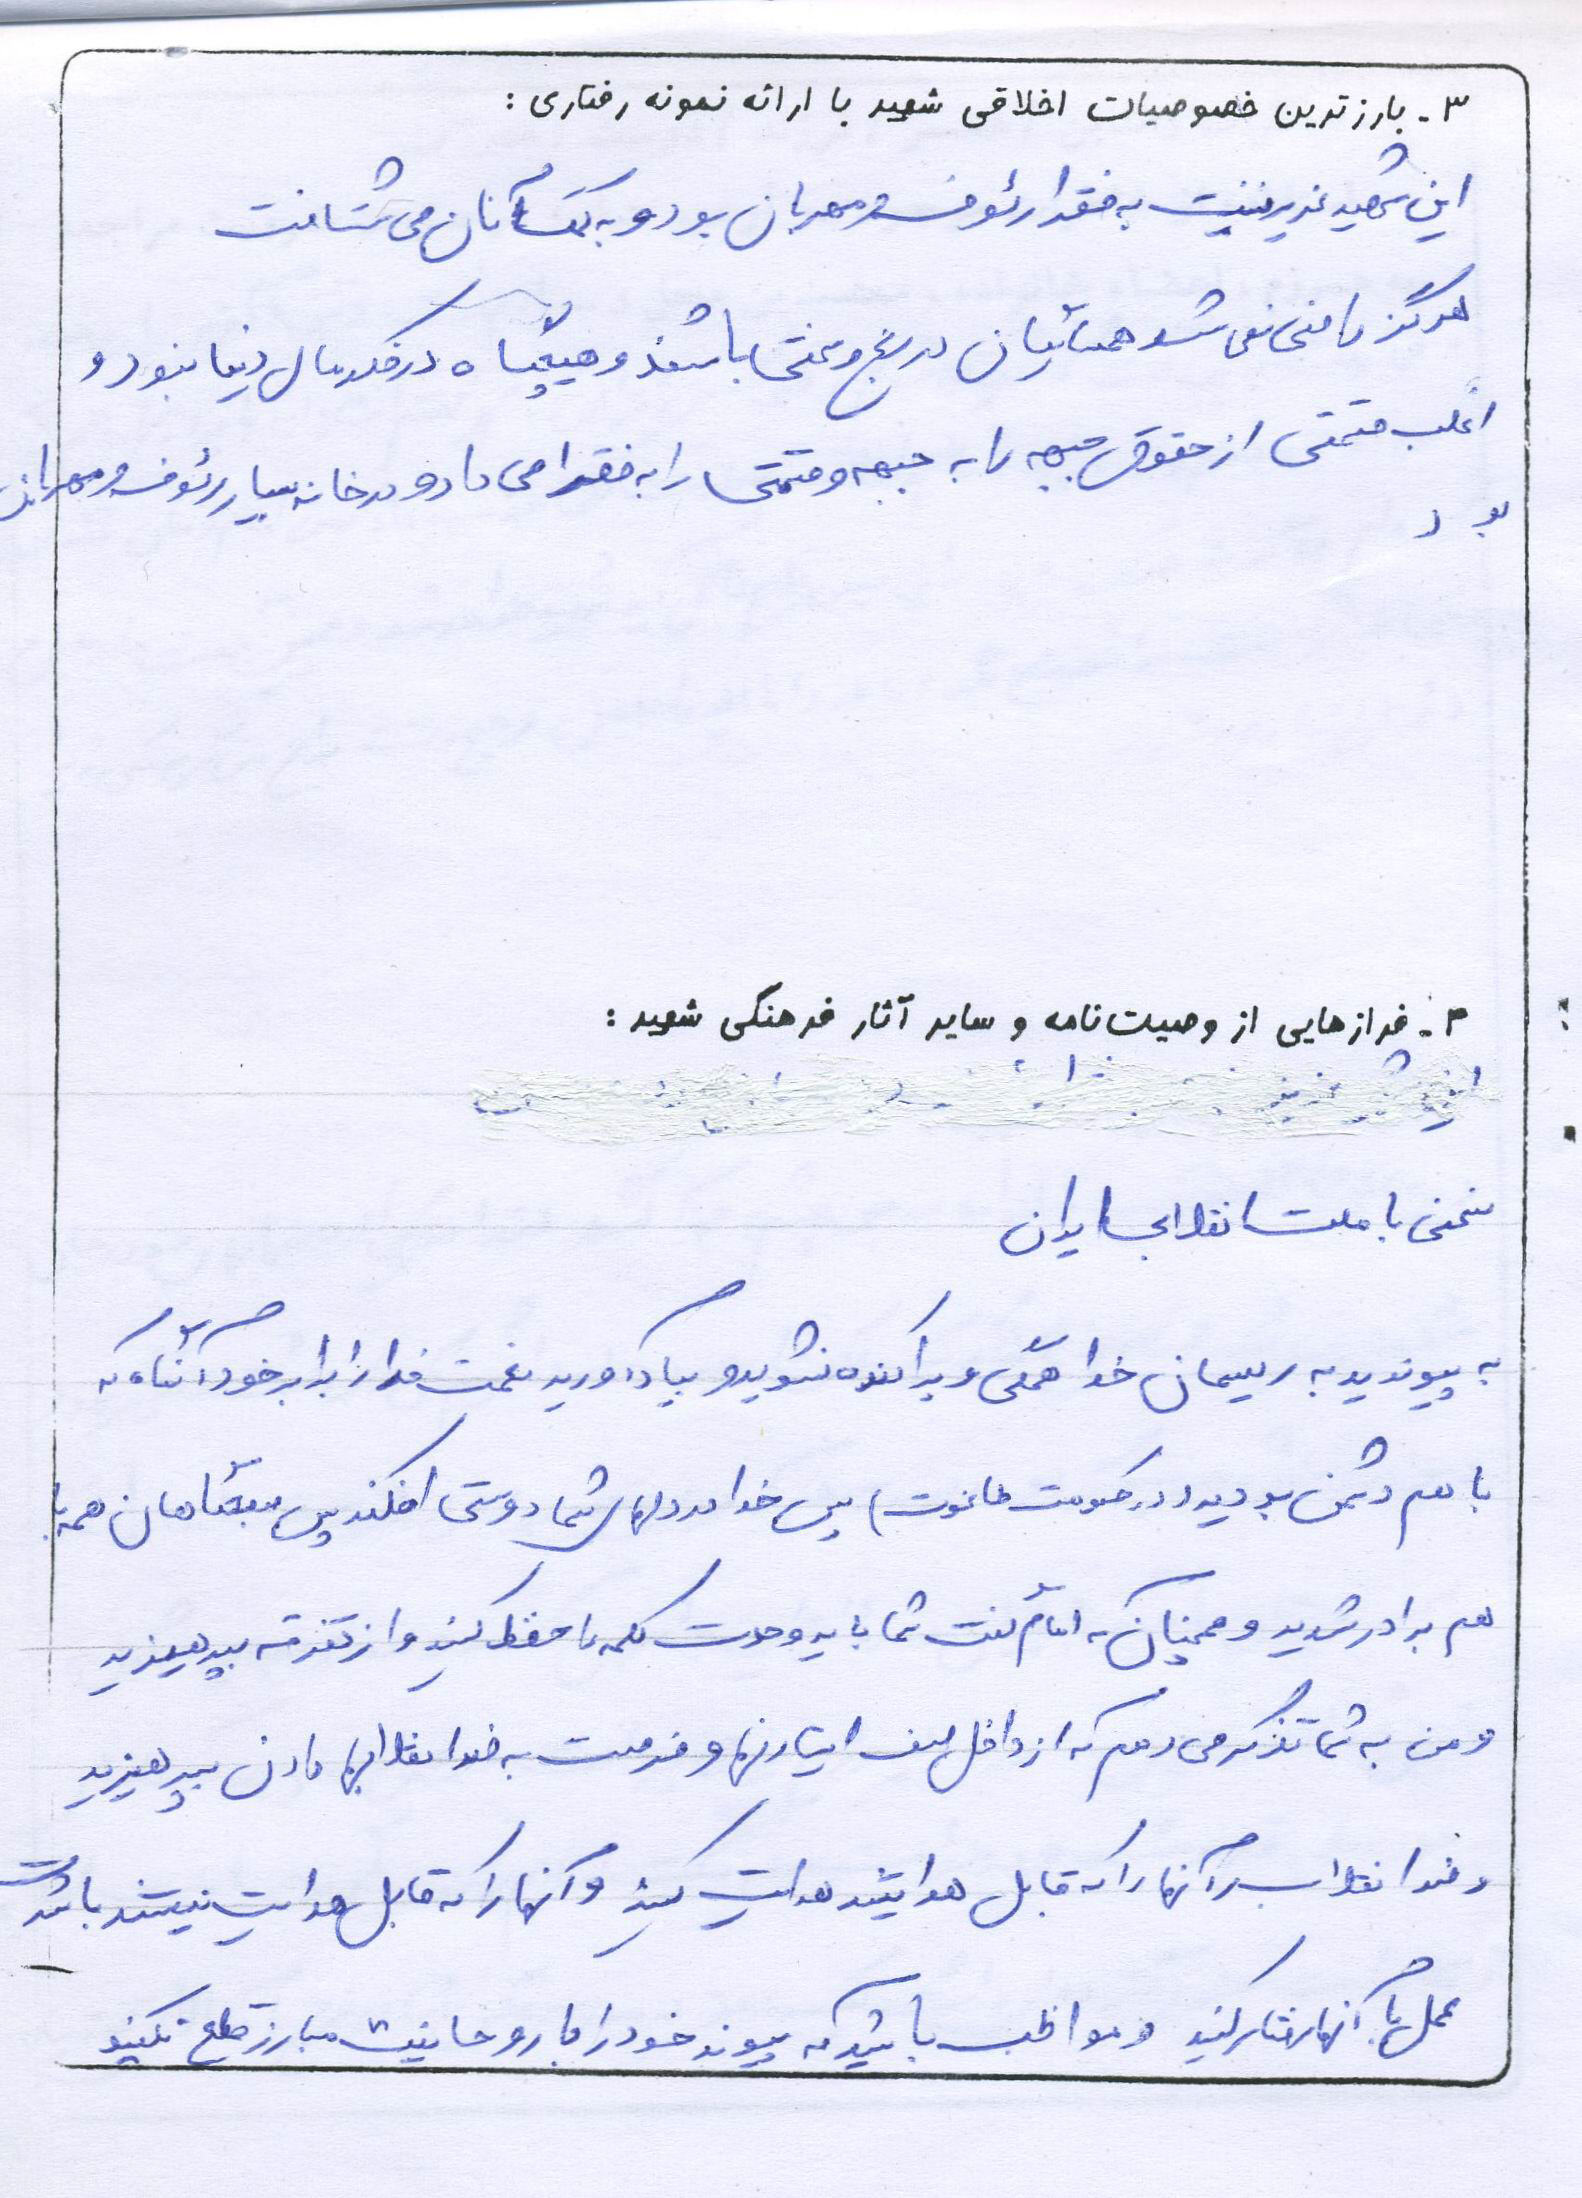 ۳- بارزترین خصوصیات اخلاقی شهید با ارائه نمونه رفتاری :
این شهید عزیز نسبت به فقرا رئوف و مهربان بود و به کمک آنان می شتافت
هرگز راضی نمی شد همسایگان در رنج و سختی باشند و هیچگاه در فکر مال دنیا نبود و
اغلب قسمتی از حقوق جبهه را به جبهه و قسمتی را به فقرا می داد و در خانه بسیار رئوف و مهربان
بود
۴- فرازهایی از وصیت نامه و سایر آثار فرهنگی شهید :
سخنی با ملت انقلابی ایران
به پیوندید به ریسمان خدا همگی و پراکنده نشوید و بیاد آورید نعمت خدا را برابر خود آنگاه که
با هم دشمن بودید (در حکومت طاغوت) پس خدا در دلهای شما دوستی افکند پس صبحگاهان همه با
هم برادر شدید و همچنان که امام گفت شما باید وحدت کلمه را حفظ کنید و از تفرقه بپرهیزید
و من به شما تذکر می دهم که از داخل صف ایستادنها و فرصت به ضد انقلابها دادن بپرهیزید
و ضد انقلاب آنها را که قابل هدایتند هدایت کنید و آنها را که قابل هدایت نیستند با شدت
عمل با آنها رفتار کنید و مواظب باشید که پیوند خود را با روحانیت مبارز قطع نکنید